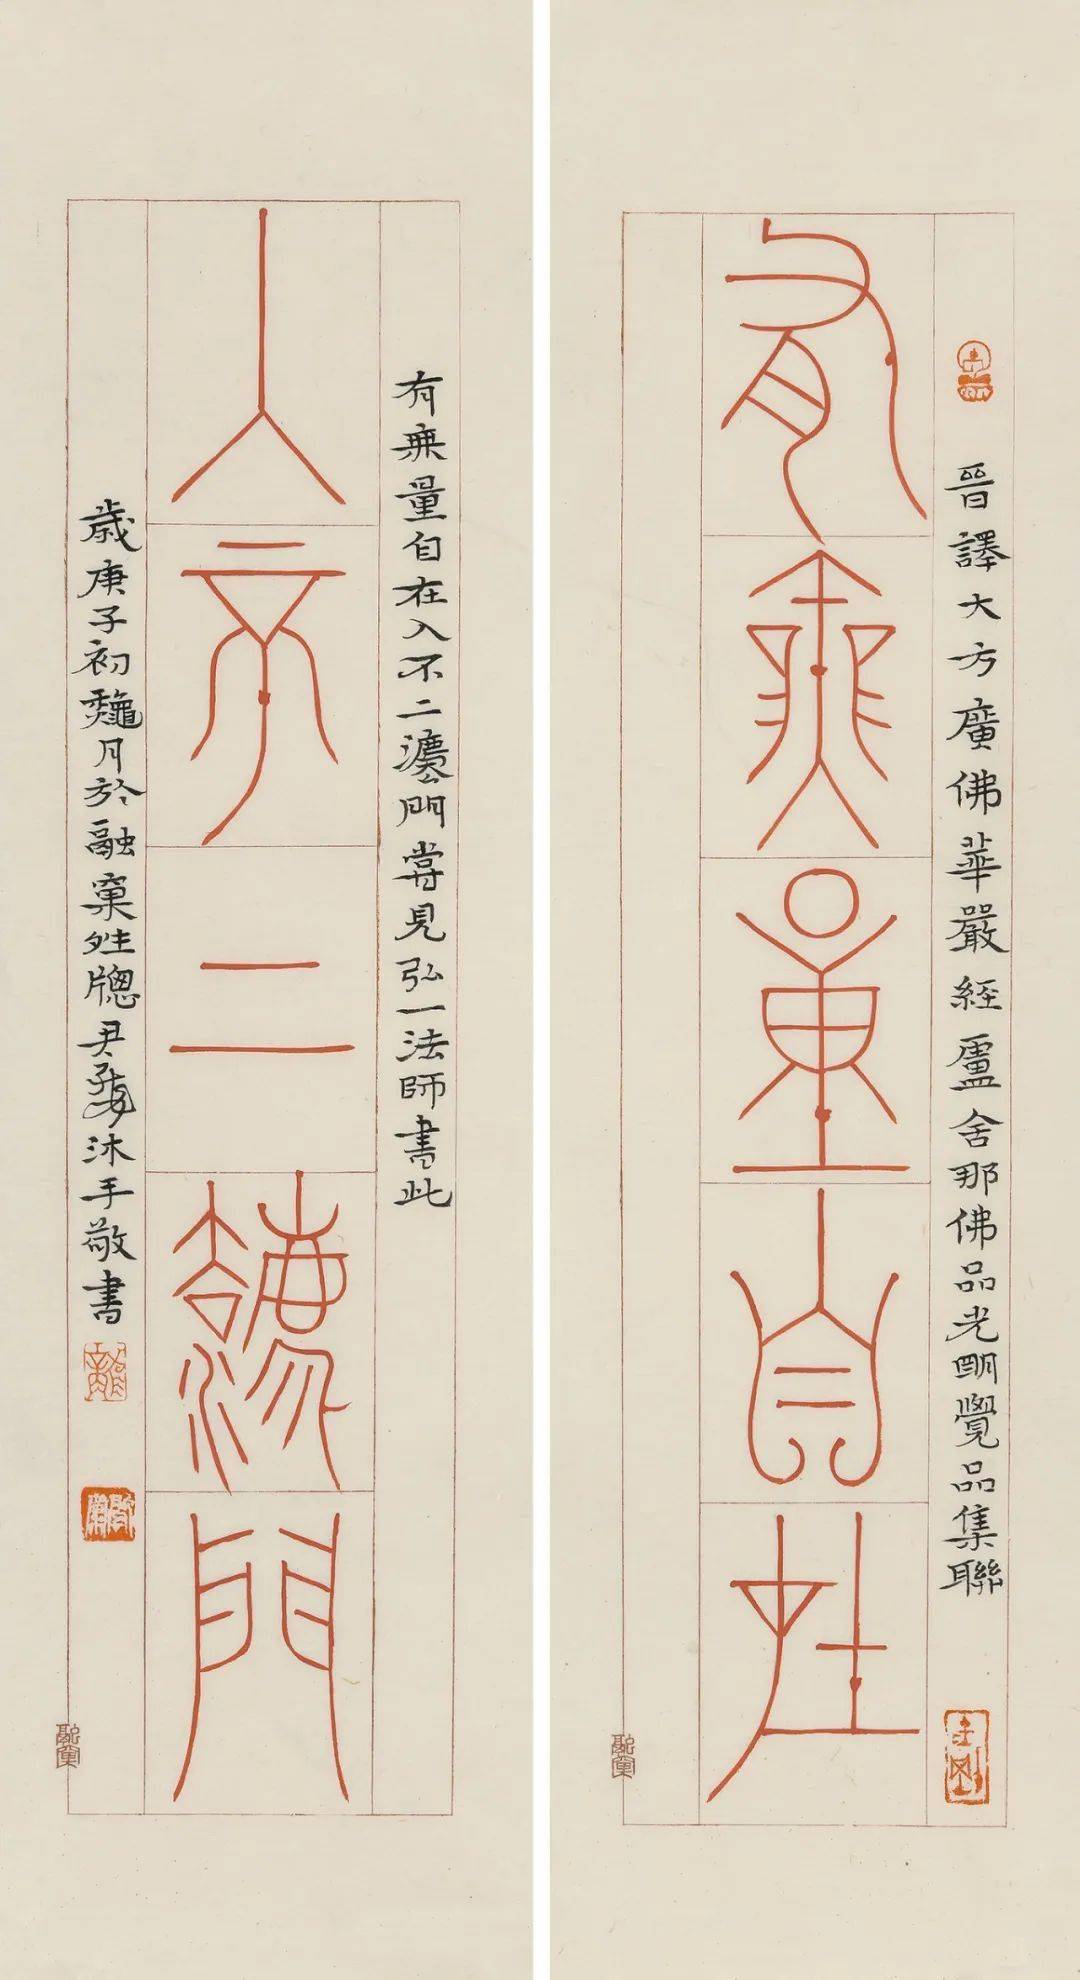 有無量自在
晉譯大方廣佛華嚴經盧舍那佛品光明覺品集聯
入不二灋門
有無量自在入不二灋門嘗見弘一法師書此
歲庚子初龝月於融窠牲牕尹海龍沐手敬書